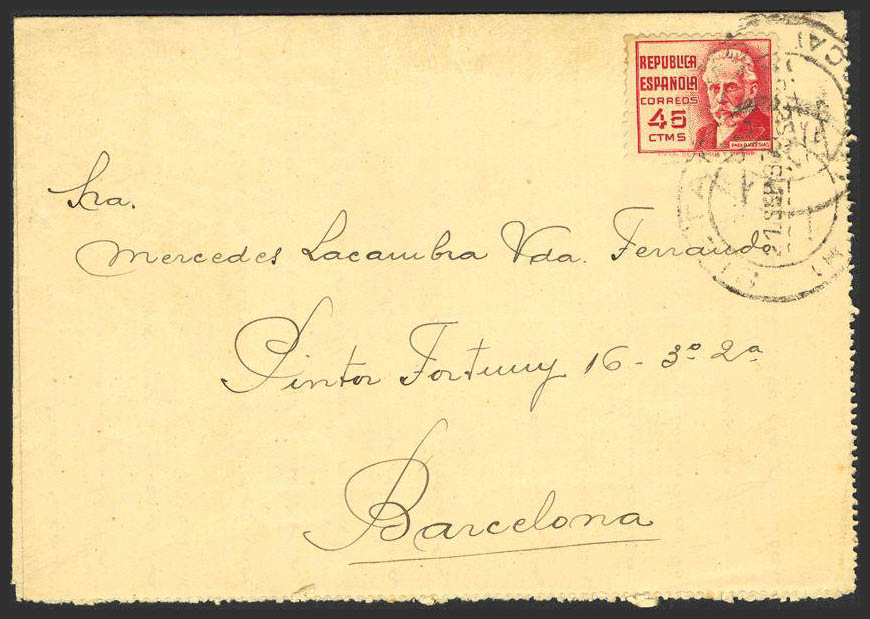 REPUBLICA
ESPAÑOLA
CORREOS
45
CTMS
PABLO IGLESIAS
21 SEP
Sra.
Mercedes Lacambra Vda. Ferrando
Pintor Fortuny 16 - 3º 2ª
Barcelona